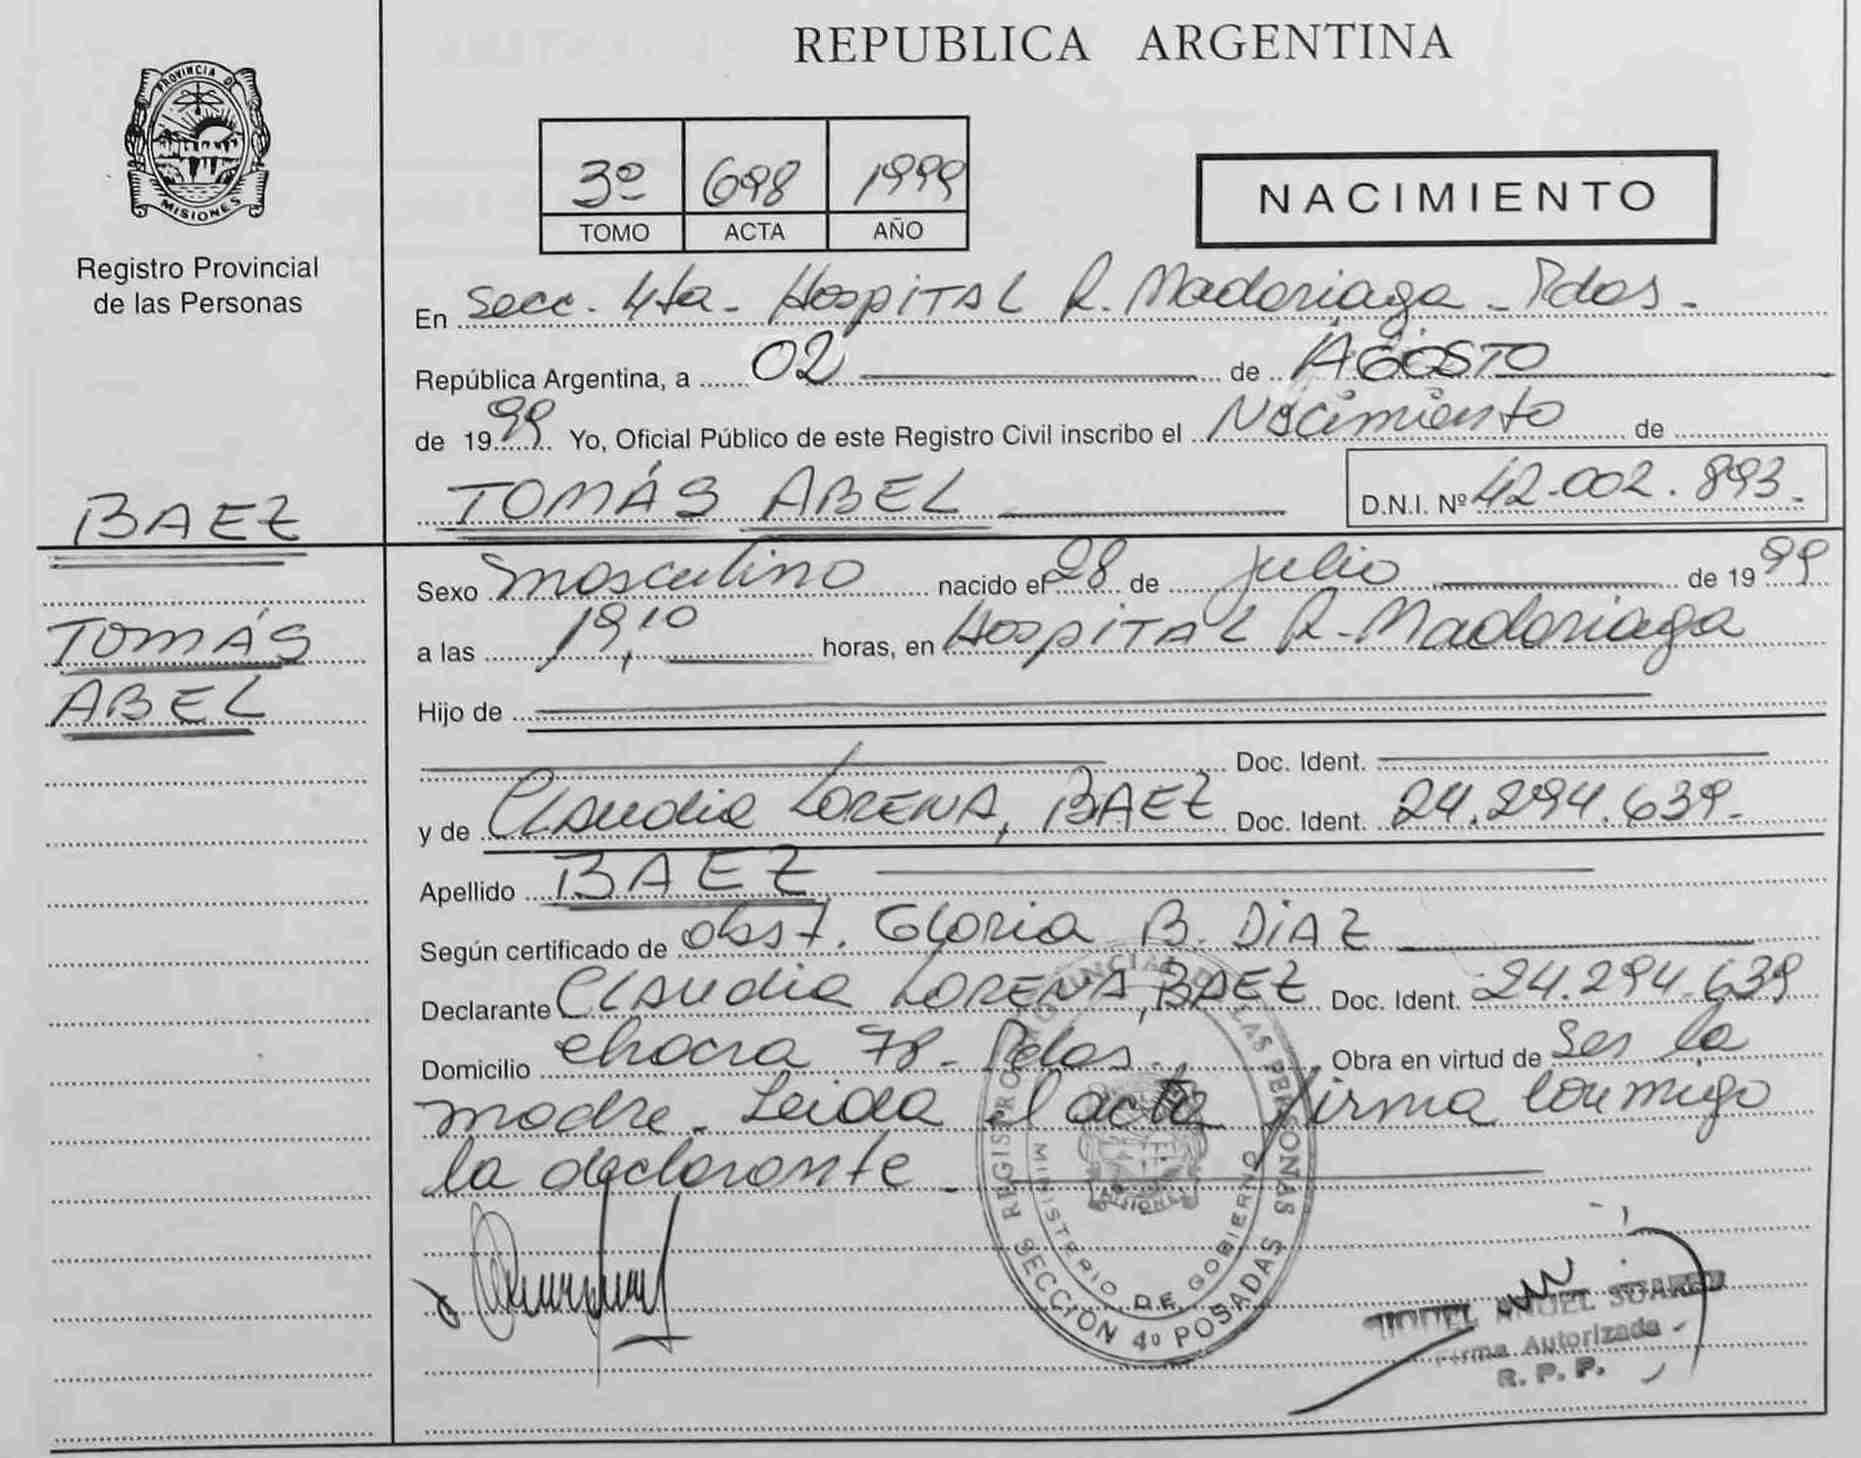 REPUBLICA ARGENTINA
PROVINCIA DE
MISIONES
Registro Provincial
de las Personas
3º 698 1999
TOMO ACTA AÑO
NACIMIENTO
En Secc. 4ta - Hospital R. Madariaga - Pdas -
República Argentina, a 02 de AGOSTO
de 1999 Yo, Oficial Público de este Registro Civil inscribo el Nacimiento de
TOMÁS ABEL D.N.I. Nº 42.002.893.
BAEZ
TOMÁS
ABEL
Sexo masculino nacido el 28 de Julio de 1999
a las 19,10 horas, en Hospital R. Madariaga
Hijo de
Doc. Ident.
y de Claudia LORENA, BAEZ Doc. Ident. 24.294.639.
Apellido BAEZ
Según certificado de obst. Gloria B. DIAZ
Declarante Claudia LORENA, BAEZ Doc. Ident. 24.294.639
Domicilio chacra 78 - Pdas. Obra en virtud de Ser la
madre - Leida el acta firma conmigo
la declarante
REGISTRO PROVINCIAL DE LAS PERSONAS
MINISTERIO DE GOBIERNO
MISIONES
SECCIÓN 4º POSADAS
ANGEL SUAREZ
Firma Autorizada
R. P. P.